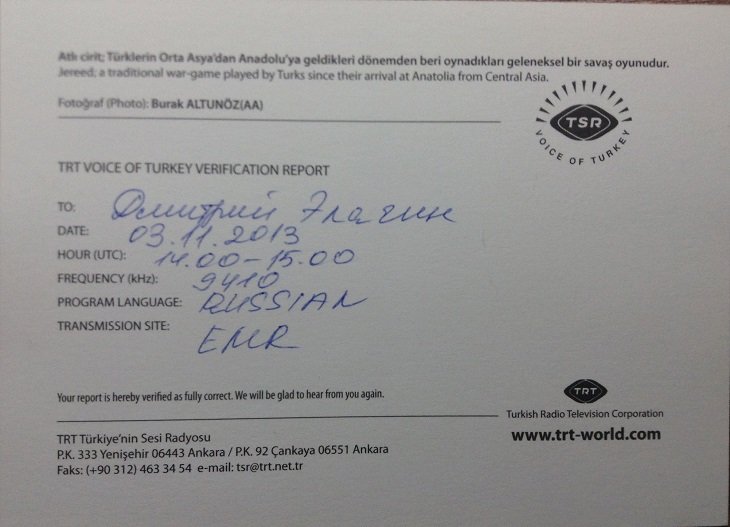 Atlı cirit; Türklerin Orta Asya'dan Anadolu'ya geldikleri dönemden beri oynadıkları geleneksel bir savaş oyunudur.
Jereed; a traditional war-game played by Turks since their arrival at Anatolia from Central Asia.
Fotoğraf (Photo): Burak ALTUNÖZ(AA)
TSR
VOICE OF TURKEY
TRT VOICE OF TURKEY VERIFICATION REPORT
TO: Дмитрий Элагин
DATE: 03.11.2013
HOUR (UTC): 14.00-15.00
FREQUENCY (kHz): 9410
PROGRAM LANGUAGE: RUSSIAN
TRANSMISSION SITE: EMR
Your report is hereby verified as fully correct. We will be glad to hear from you again.
TRT
Turkish Radio Television Corporation
www.trt-world.com
TRT Türkiye'nin Sesi Radyosu
P.K. 333 Yenişehir 06443 Ankara / P.K. 92 Çankaya 06551 Ankara
Faks: (+90 312) 463 34 54 e-mail: tsr@trt.net.tr